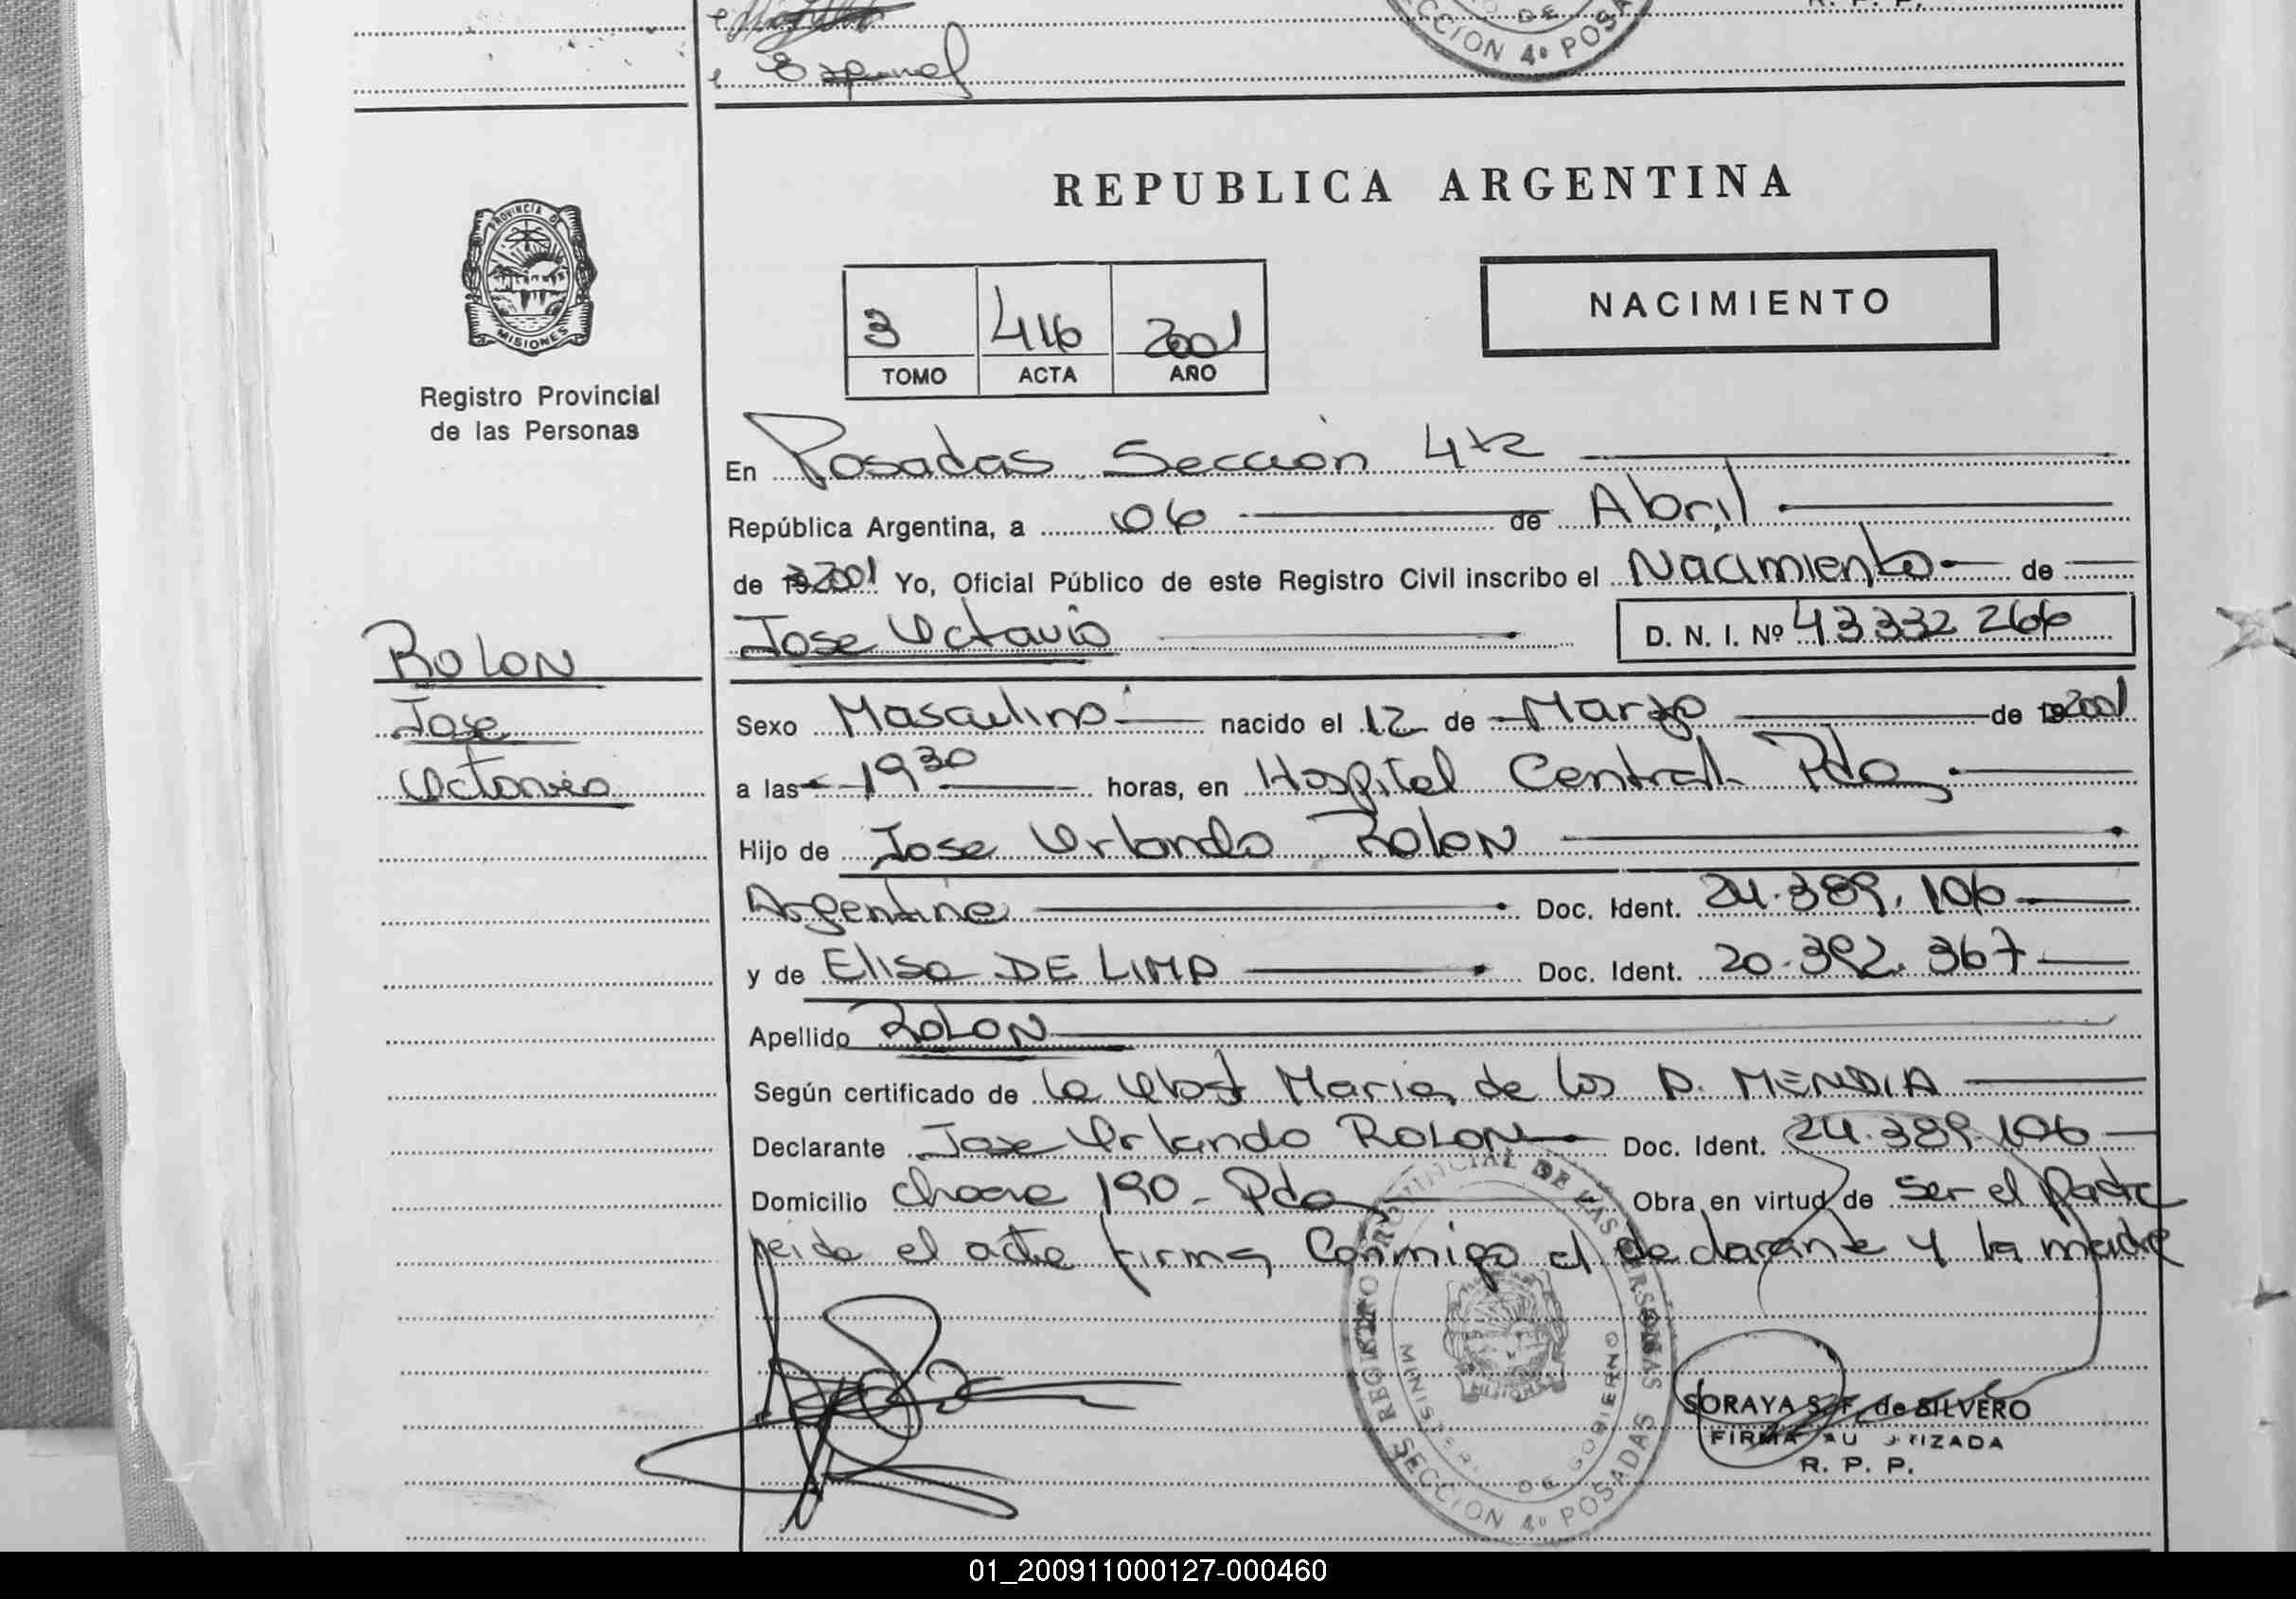 Español
SECCION 4º POSADAS
DE
R. P. P.
PROVINCIA DE
MISIONES
Registro Provincial
de las Personas
REPUBLICA ARGENTINA
NACIMIENTO
3 416 2001
TOMO ACTA AÑO
En Posadas Sección 4ta
República Argentina, a 06 de Abril
de 2001 Yo, Oficial Público de este Registro Civil inscribo el Nacimiento de
Jose Octavio D. N. I. Nº 43332266
ROLON
Jose
Octavio
Sexo Masculino nacido el 12 de Marzo de 2001
a las 19 30 horas, en Hospital Central Pdas
Hijo de Jose Orlando Rolon
Argentino Doc. Ident. 24.389.106
y de Elisa DE LIMA Doc. Ident. 20.392.367
Apellido ROLON
Según certificado de la Obst Maria de los A. MENDIA
Declarante Jose Orlando ROLON Doc. Ident. 24.389.106
Domicilio 190 - Pdas Obra en virtud de ser el padre
leida el acta firma conmigo el declarante y la madre
REGISTRO PROVINCIAL DE LAS PERSONAS
MINISTERIO DE GOBIERNO
MISIONES
SECCION 4º POSADAS
SORAYA S. F. de SILVERO
FIRMA AUTORIZADA
R. P. P.
01_200911000127-000460